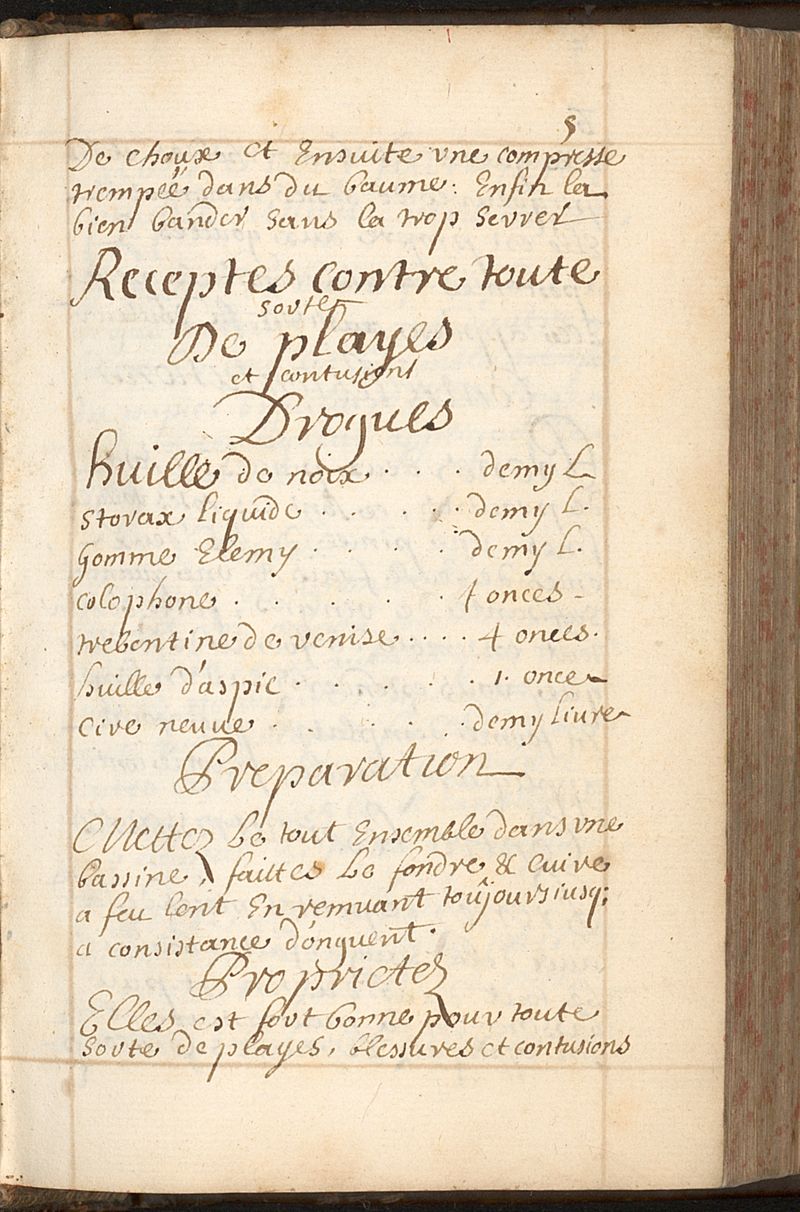 5
De choux et Ensuite vne compresse
trempéé dans du baume. Enfin la
bien bander sans la trop serrer
Receptes contre toute
sorte
De playes
et contusions
Drogues
huille de noix . . . demy L
storax liquide . . . . demy l.
gomme Elemy . . . . demy l.
colophone . . . . . 4 onces -
trebentine de venise . . . . 4 onces.
huille d'aspic . . . . . 1. once
Cire neuue . . . . . demy liure
Preparation
Mettez Le tout Ensemble dans vne
bassine, faittes Le fondre & cuire
a feu lent En remuant toûjours iusq;
a consistance d'onguent.
Proprietez
Elles est fort bonne pour toute
sorte de playes, blessures et contusions